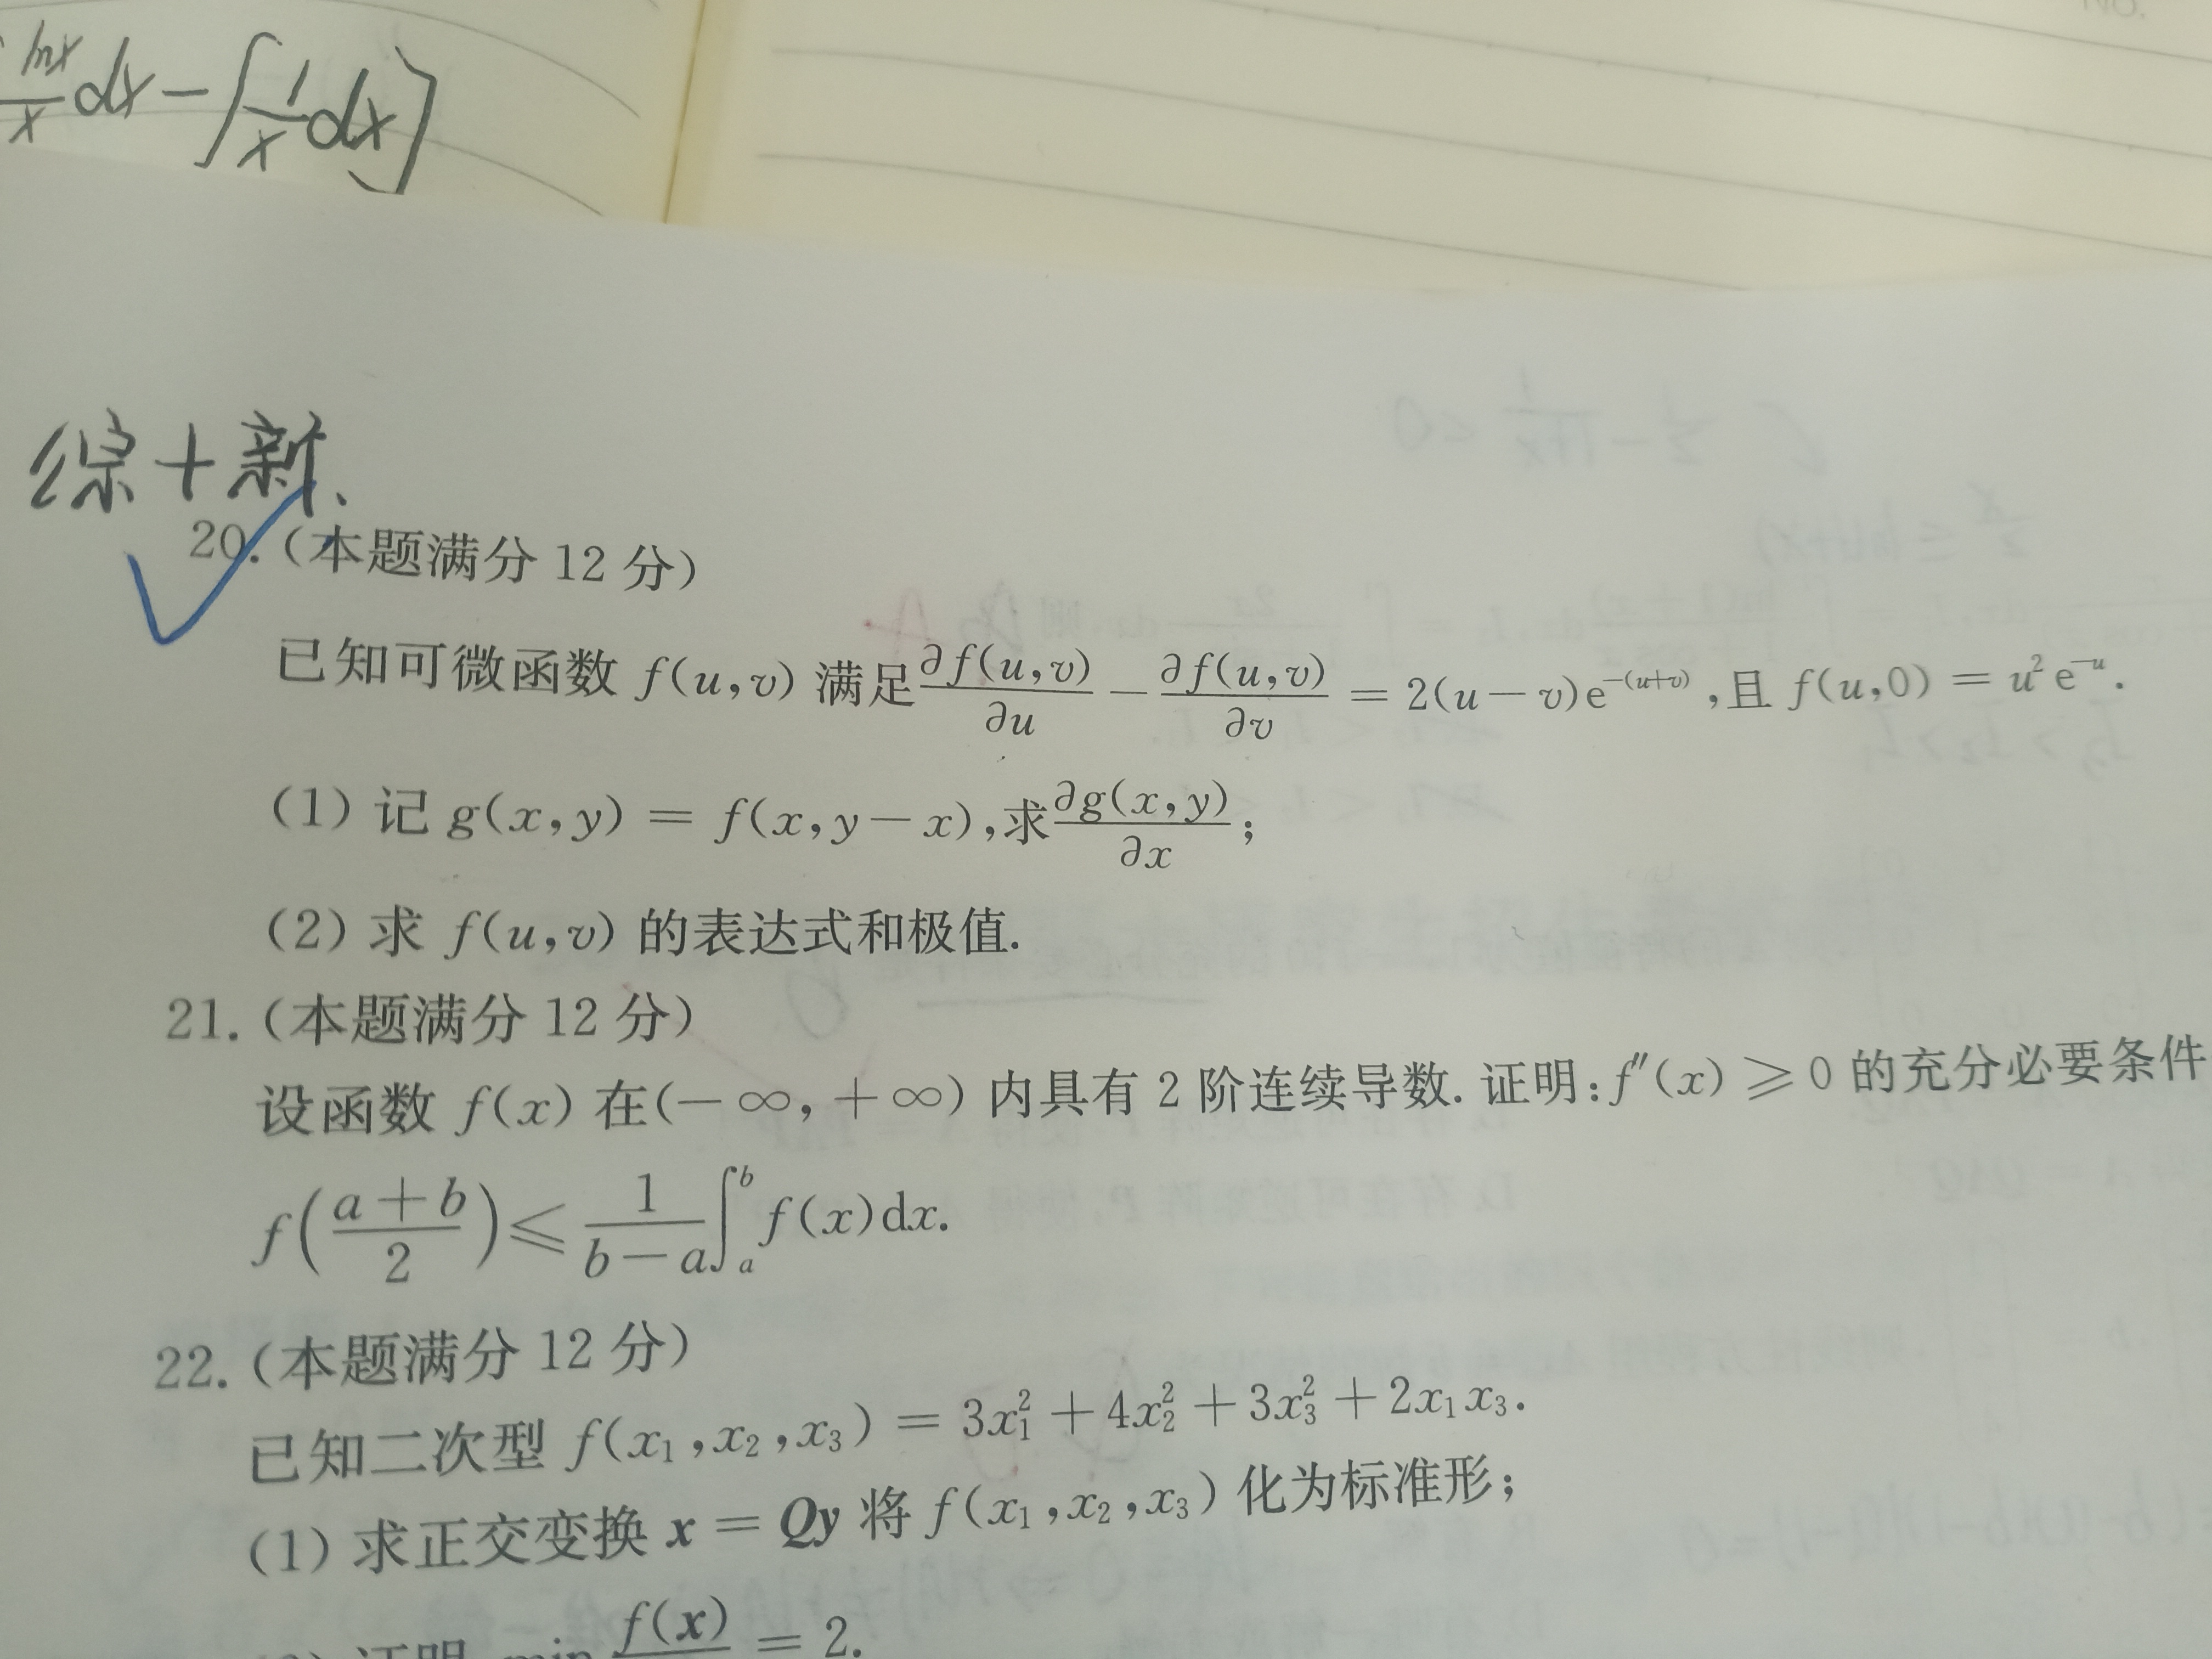 No.
lnx/x dx - ∫ 1/x dx]
综+新.
20.(本题满分 12 分)
已知可微函数 f(u,v) 满足 ∂f(u,v)/∂u - ∂f(u,v)/∂v = 2(u-v)e^{-(u+v)},且 f(u,0) = u²e^{-u}.
(1) 记 g(x,y) = f(x,y-x),求 ∂g(x,y)/∂x;
(2) 求 f(u,v) 的表达式和极值.
21.(本题满分 12 分)
设函数 f(x) 在(-∞,+∞) 内具有 2 阶连续导数.证明:f″(x) ⩾ 0 的充分必要条件
f((a+b)/2) ⩽ 1/(b-a) ∫_a^b f(x)dx.
22.(本题满分 12 分)
已知二次型 f(x₁,x₂,x₃) = 3x₁² + 4x₂² + 3x₃² + 2x₁x₃.
(1) 求正交变换 x = Qy 将 f(x₁,x₂,x₃) 化为标准形;
证明 min f(x) = 2.